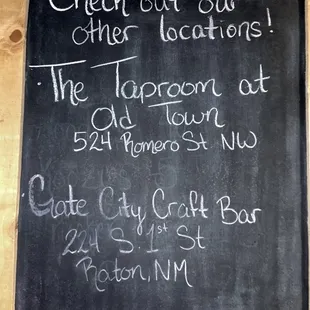 Check out our
other locations!
· The Taproom at
Old Town
524 Romero St NW
· Gate City Craft Bar
224 S. 1st St
Raton, NM